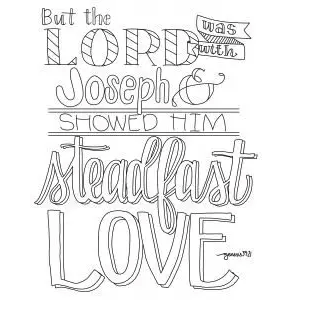 But the
LORD was with
Joseph, &
SHOWED HIM
steadfast
LOVE